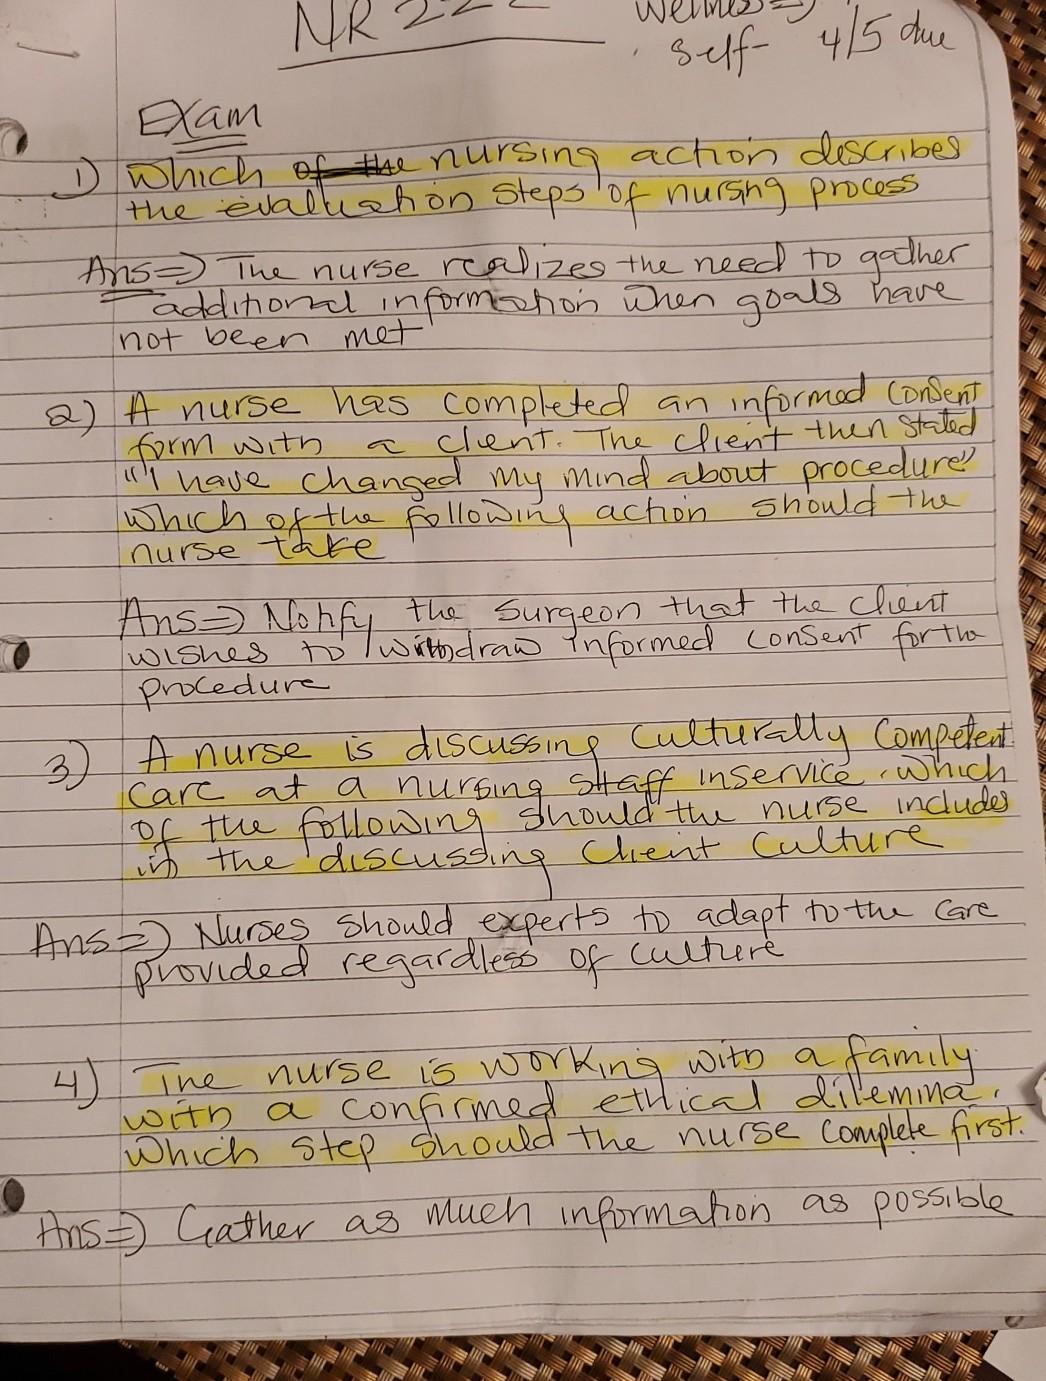 NR 222
Wellness =>
Self- 4/5 due
Exam
1) Which of the nursing action describes
the evaluation steps of nursing process
Ans => The nurse realizes the need to gather
additional information when goals have
not been met
2) A nurse has completed an informed consent
form with a client. The client then stated
"I have changed my mind about procedure"
which of the following action should the
nurse take
Ans => Notify the surgeon that the client
wishes to withdraw informed consent for the
procedure
3) A nurse is discussing culturally competent
care at a nursing staff inservice. which
of the following should the nurse includes
in the discussing client culture
Ans => Nurses should experts to adapt to the care
provided regardless of culture
4) The nurse is working with a family
with a confirmed ethical dilemma.
Which step should the nurse complete first.
Ans => Gather as much information as possible